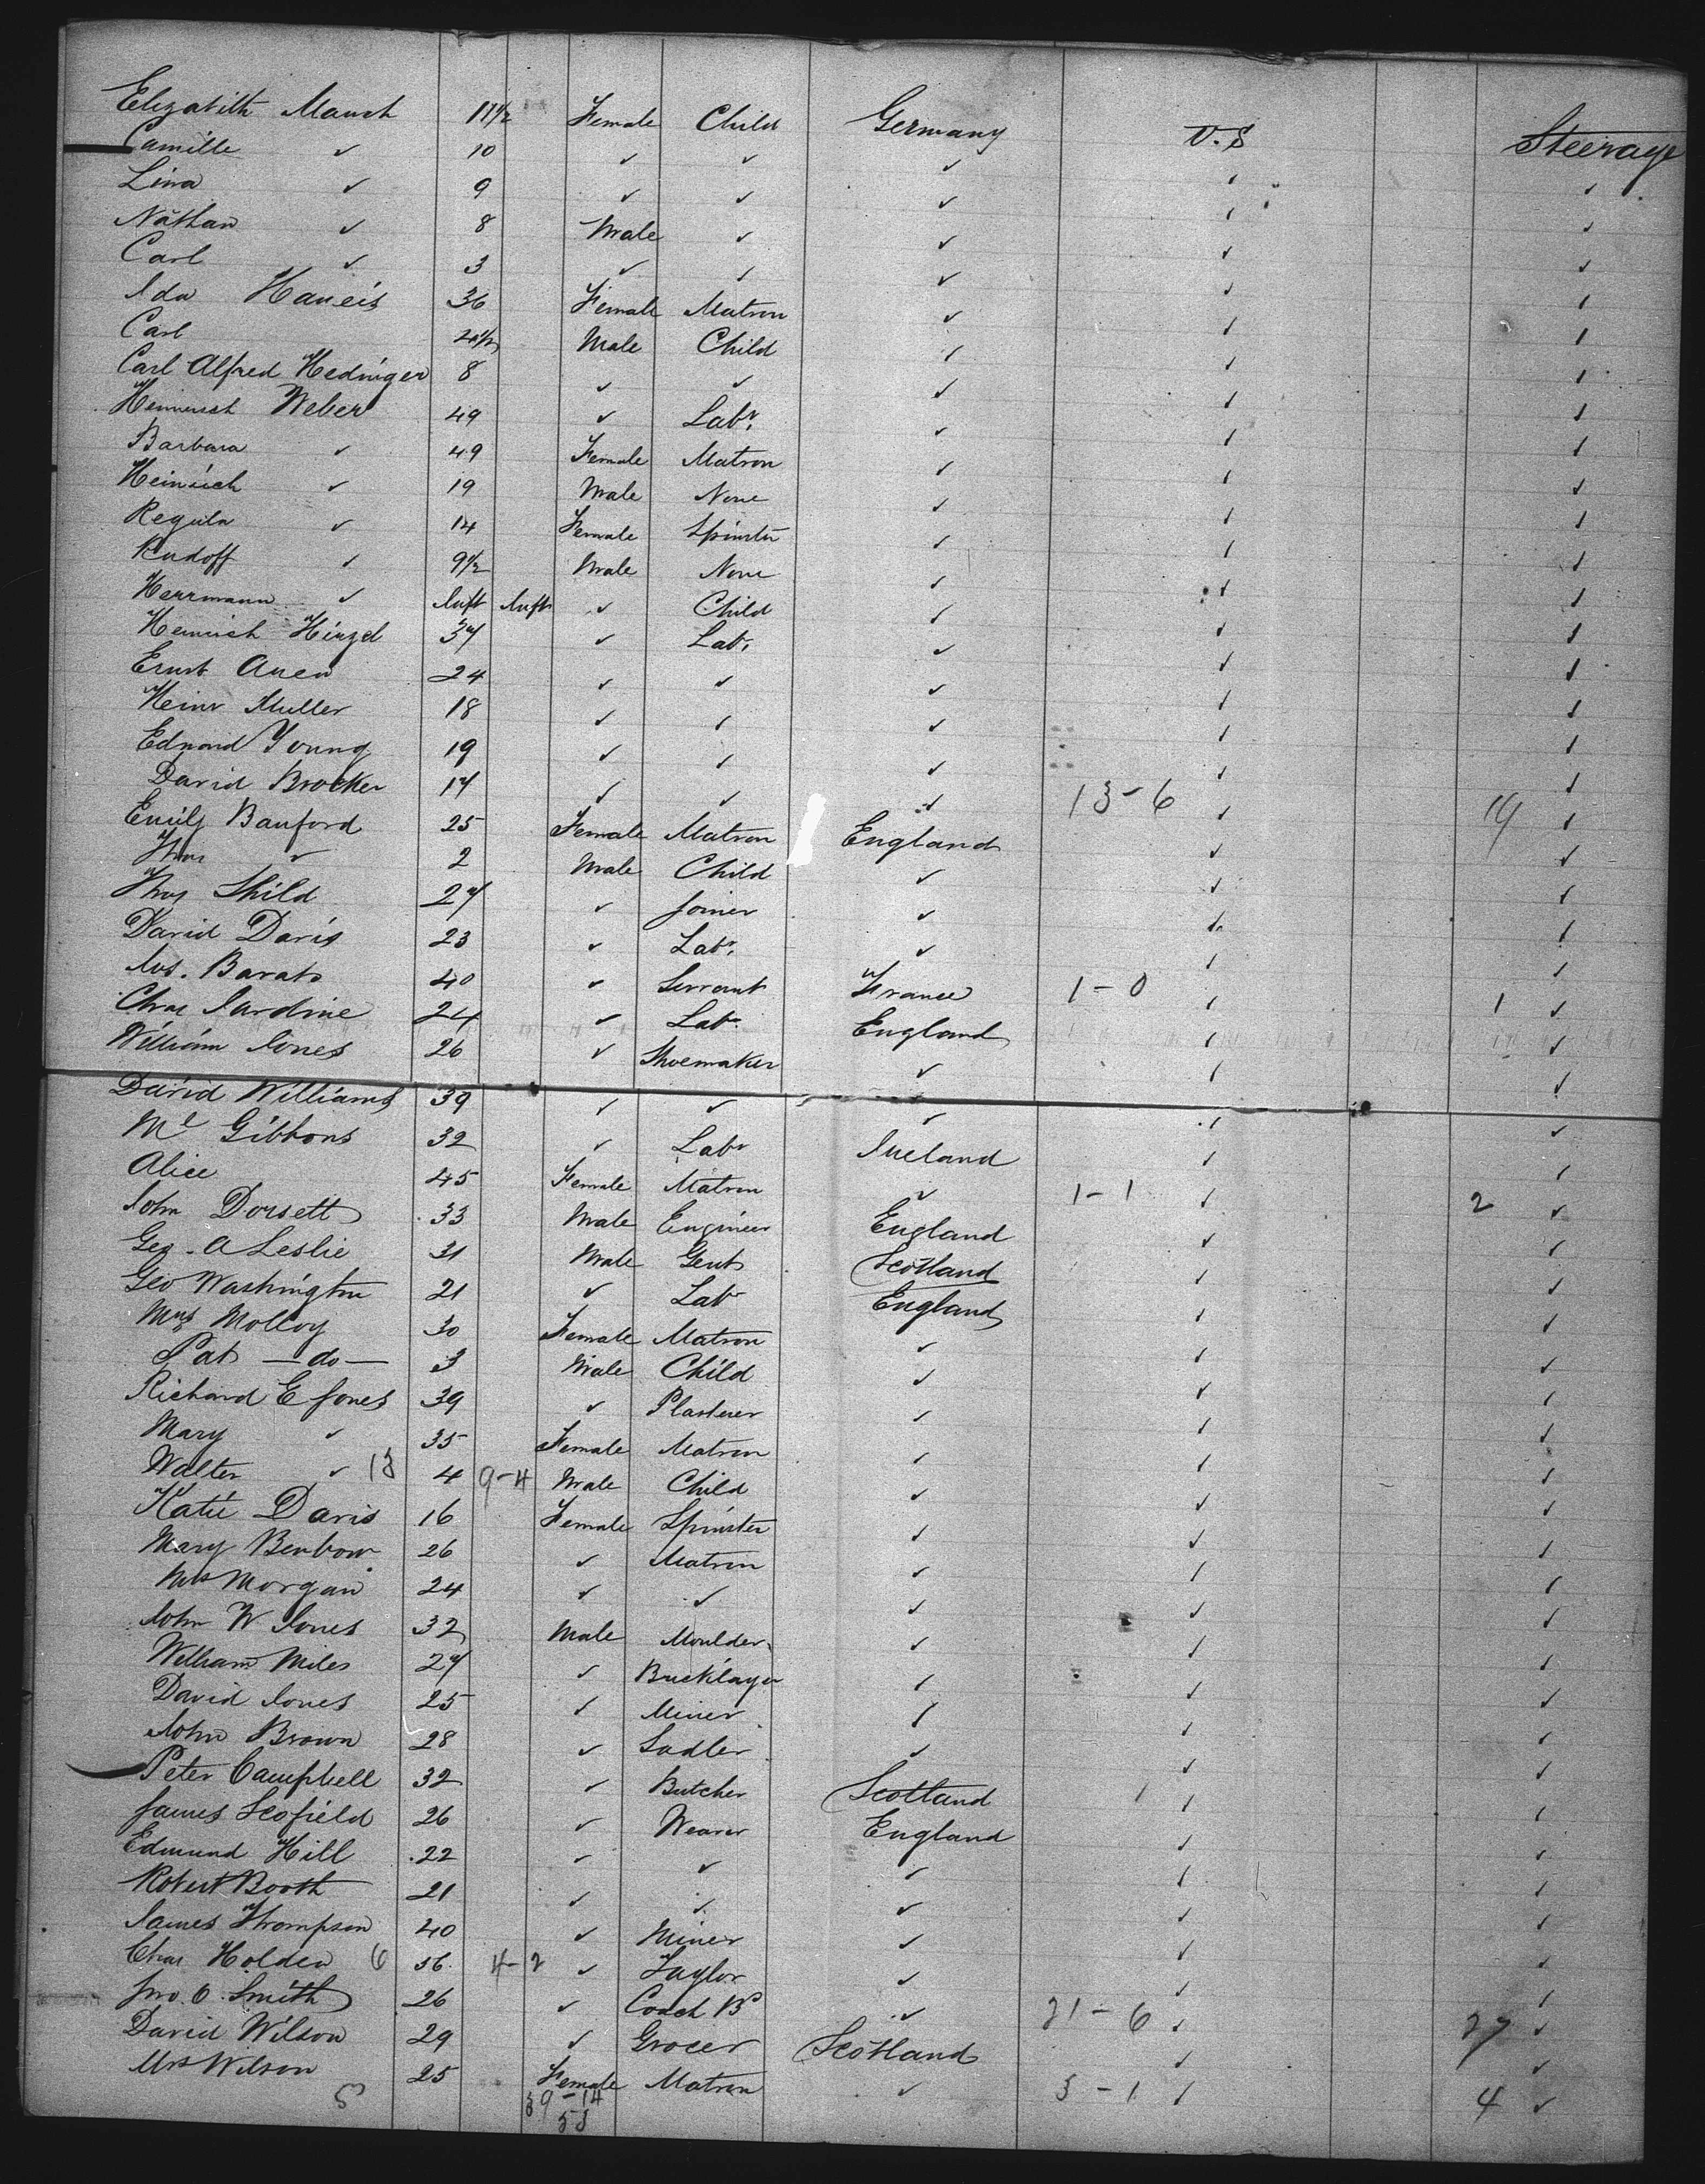 Elizabeth Mauch 11 1/2 Female Child Germany U.S Steerage
Camille ✓ 10 ✓ ✓ ✓ ✓ ✓
Lina ✓ 9 ✓ ✓ ✓ ✓ ✓
Nathan ✓ 8 Male ✓ ✓ ✓ ✓
Carl ✓ 3 ✓ ✓ ✓ ✓ ✓
Ida Haneis 36 Female Matron ✓ ✓ ✓
Carl Male Child ✓ ✓ ✓
Carl Alfred Hedinger 8 ✓ ✓ ✓ ✓ ✓
Heinrich Weber 49 ✓ Labr. ✓ ✓ ✓
Barbara ✓ 49 Female Matron ✓ ✓ ✓
Heinrich ✓ 19 Male None ✓ ✓ ✓
Regula ✓ 14 Female Spinster ✓ ✓ ✓
Rudoff ✓ 9 1/2 Male None ✓ ✓ ✓
Herrmann ✓ Inft Inft ✓ Child ✓ ✓ ✓
Heinrich Hinzel 37 ✓ Labr. ✓ ✓ ✓
Ernst Auen 24 ✓ ✓ ✓ ✓ ✓
Heinr Muller 18 ✓ ✓ ✓ ✓ ✓
Edmond Young 19 ✓ ✓ ✓ ✓ ✓
David Brocker 17 ✓ ✓ ✓ 13-6 ✓ 19 ✓
Emily Banford 25 Female Matron England ✓ ✓
Thos ✓ 2 Male Child ✓ ✓ ✓
Thos Shild 27 ✓ Joiner ✓ ✓ ✓
David Davis 23 ✓ Labr. ✓ ✓ ✓
Jos. Barats 40 ✓ Servant France 1-0 ✓ 1 ✓
Chas Jardine 24 ✓ Labr. England ✓ ✓
William Jones 26 ✓ Shoemaker ✓ ✓ ✓
David Williams 39 ✓ ✓ ✓ ✓ ✓
Ml Gibbons 32 ✓ Labr Ireland ✓ ✓
Alice 45 Female Matron ✓ 1-1 ✓ 2 ✓
John Dorsett 33 Male Engineer England ✓ ✓
Geo. A Leslie 31 Male Gent Scotland ✓ ✓
Geo Washington 21 ✓ Labr England ✓ ✓
Mrs Molloy 30 Female Matron ✓ ✓ ✓
Pat — do — 3 Male Child ✓ ✓ ✓
Richard E Jones 39 ✓ Plasterer ✓ ✓ ✓
Mary ✓ 35 Female Matron ✓ ✓ ✓
Walter ✓ 13 4 9-4 Male Child ✓ ✓ ✓
Katie Davis 16 Female Spinster ✓ ✓ ✓
Mary Benbow 26 ✓ Matron ✓ ✓ ✓
Mrs Morgan 24 ✓ ✓ ✓ ✓ ✓
John W Jones 32 Male Moulder ✓ ✓ ✓
William Miles 27 ✓ Bricklayer ✓ ✓ ✓
David Jones 25 ✓ Miner ✓ ✓ ✓
John Brown 28 ✓ Sadler ✓ ✓ ✓
Peter Campbell 32 ✓ Butcher Scotland 1 ✓ ✓
James Scofield 26 ✓ Weaver England ✓ ✓
Edmund Hill 22 ✓ ✓ ✓ ✓ ✓
Robert Booth 21 ✓ ✓ ✓ ✓ ✓
James Thompson 40 ✓ Miner ✓ ✓ ✓
Chas Holden 6 56 4-2 ✓ Taylor ✓ ✓ ✓
Jno. O. Smith 26 ✓ Coach Br ✓ 21-6 ✓ 27 ✓
David Wilson 29 ✓ Grocer Scotland ✓ ✓
Mrs Wilson 25 Female Matron ✓ 3-1 ✓ 4 ✓
5 39-14
53